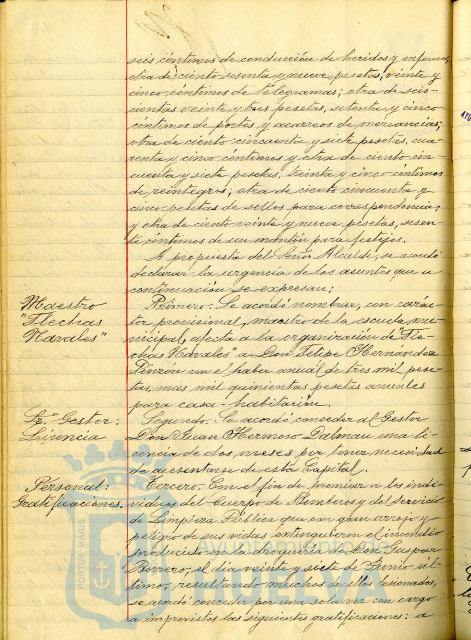 seis céntimos de conducción de heridos y enfermos;
otra de ciento sesenta y nueve pesetas, veinte y
cinco céntimos de telegramas; otra de seis-
cientas veinte y tres pesetas, setenta y cinco
céntimos de portes y acarreos de mercancias;
otra de ciento cincuenta y siete pesetas, cua-
renta y cinco céntimos y otra de ciento cin-
cuenta y siete pesetas, treinta y cinco céntimos
de reintegros; otra de ciento cincuenta y
cinco pesetas de sellos para correspondencia;
y otra de ciento veinte y nueve pesetas, sesen-
ta céntimos de un mantón para festejos.
A propuesta del Señor Alcalde, se acordó
declarar la urgencia de los asuntos que a
continuación se expresan:
Maestro
"Flechas
Navales"
Primero: Se acordó nombrar, con carác-
ter provisional, maestro de la escuela mu-
nicipal, afecta a la organización de "Fle-
chas Navales" a Don Felipe Hernández
Pinzón con el haber anual de tres mil pese-
tas, mas mil quinientas pesetas anuales
para casa-habitación.
Sr. Gestor:
Licencia
Segundo. Se acordó conceder al Gestor
Don Juan Hermoso Dalmau una li-
cencia de dos meses por tener necesidad
de ausentarse de esta Capital.
Personal:
Gratificaciones.
Tercero. Con el fin de premiar a los indi-
viduos del Cuerpo de Bomberos y del Servicio
de Limpieza Pública que con gran arrojo y
peligro de sus vidas extinguieron el incendio
producido en la droguería de Don Gaspar
Borrero, el dia veinte y siete de Junio úl-
timo, resultando muchos de ellos lesionados,
se acordó conceder por una sola vez con cargo
a imprevistos las siguientes gratificaciones: a
Ayuntamiento de
HUELVA
PORTUS MARIS